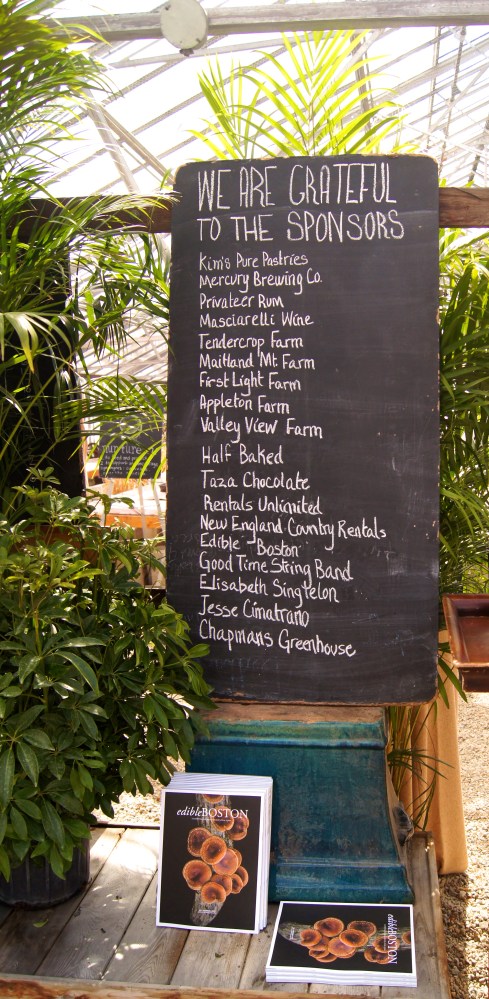 WE ARE GRATEFUL
TO THE SPONSORS
Kim's Pure Pastries
Mercury Brewing Co.
Privateer Rum
Masciarelli Wine
Tendercrop Farm
Maitland Mt. Farm
First Light Farm
Appleton Farm
Valley View Farm
Half Baked
Taza Chocolate
Rentals Unlimited
New England Country Rentals
Edible Boston
Good Time String Band
Elisabeth Singleton
Jesse Cimatrano
Chapmans Greenhouse
nurture
edibleBOSTON
edibleBOSTON